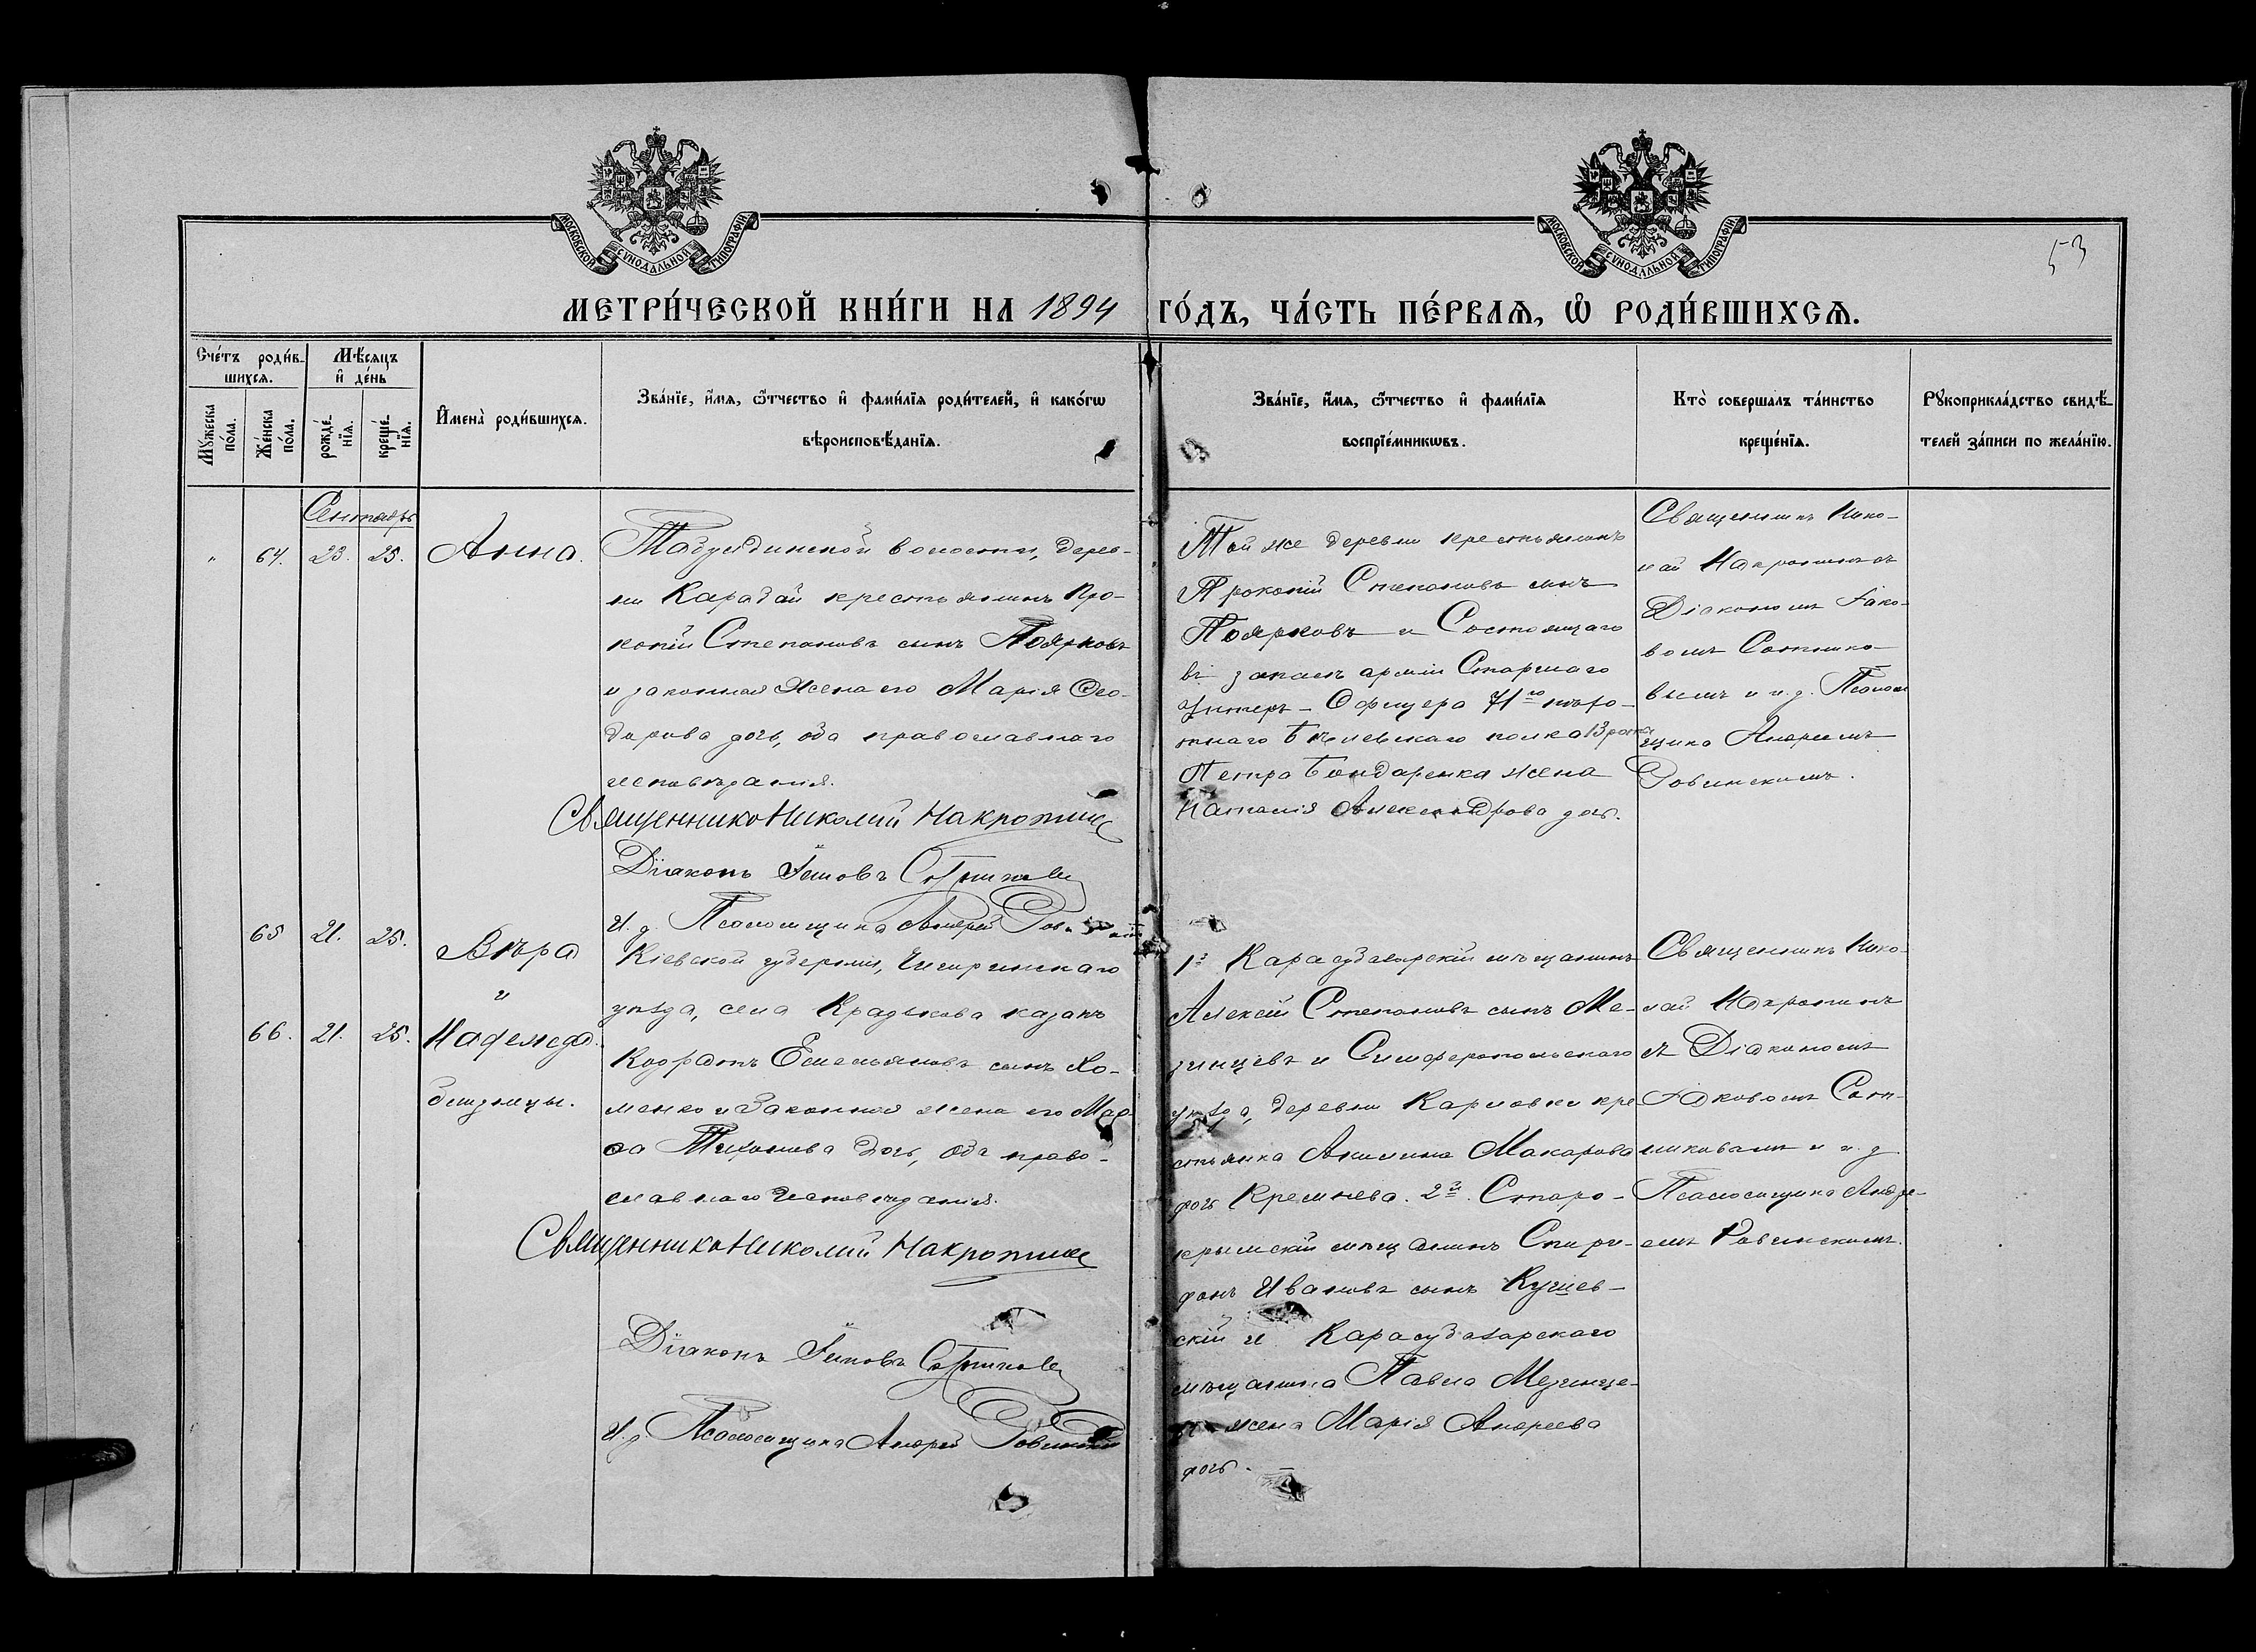 МОСКОВСКОЙ СѴНОДАЛЬНОЙ ТИПОГРАФІИ
МОСКОВСКОЙ СѴНОДАЛЬНОЙ ТИПОГРАФІИ
53
МЕТРИ́ЧЕСКОЙ КНИ́ГИ НА 1894 ГО́ДЪ, ЧА́СТЬ ПЕ́РВАѦ, Ѡ РОДИ́ВШИХСѦ.
Сче́тъ роди́в-
шихсѧ.
Мꙋжеска по́ла.
Же́нска по́ла.
Мѣ́сѧцъ
и҆ де́нь
рожде́-нїѧ.
креще́-нїѧ.
И҆мена̀ роди́вшихсѧ.
Зва́нїе, и҆́мѧ, ѻ҆́тчество и҆ фами́лїѧ роди́телей, и҆ како́гѡ
вѣроисповѣ́данїѧ.
Зва́нїе, и҆́мѧ, ѻ҆́тчество и҆ фами́лїѧ
воспрїе́мникѡвъ.
Кто̀ соверша́лъ та́инство
креще́нїѧ.
Рꙋкоприкла́дство свидѣ́-
телей за́писи по жела́нїю.
Сентябрь
" 64. 23. 25. Анна.
Табулдинской волости, дерев-
ни Карадай крестьянинъ Про-
копій Степановъ сынъ Поярковъ
и законная жена его Марія Ѳео-
дорова дочь, оба православнаго
исповѣданія.
Священникъ Николай Накропинъ
Діаконъ Іаковъ Сотниковъ
И. д. Псаломщика Андрей Ровинскій
Той же деревни крестьянинъ
Прокопій Степановъ сынъ
Поярковъ и Состоящаго
въ запасѣ арміи Старшаго
Унтеръ-Офицера 71го пѣхо-
тнаго Бѣлевскаго полка 13 роты
Петра Бондаренка жена
Наталія Александрова дочь.
Священникъ Нико-
лай Накропинъ съ
Діакономъ Іако-
вомъ Сотнико-
вымъ и и. д. Псалом
щика Андреемъ
Ровинскимъ.
65 21. 25. Вѣра
и
66. 21. 25. Надежда.
близнецы.
Кіевской губерніи, Чигиринскаго
уѣзда, села Крадькова казакъ
Кодратъ Емельяновъ сынъ Хо-
менко и Законная жена его Мар
ѳа Тихонова дочь, оба право-
славнаго исповѣданія.
Священникъ Николай Накропинъ
Діаконъ Іаковъ Сотниковъ
И. д. Псаломщика Андрей Ровинскій
1е Карасубазарскій мѣщанинъ
Алексѣй Степановъ сынъ Ме-
зинцевъ и Симферопольскаго
уѣзда, деревни Карловки кре
стьянка Акилина Макарова
дочь Кремнева. 2е Старо-
крымскій мѣщанинъ Спири-
донъ Ивановъ сынъ Кушев-
скій и Карасубазарскаго
мѣщанина Павла Мезинце-
ва жена Марія Андреева
дочь.
Священникъ Нико-
лай Накропинъ
съ Діакономъ
Іаковомъ Сот-
никовымъ и и. д.
Псаломщика Андре-
емъ Ровинскимъ.